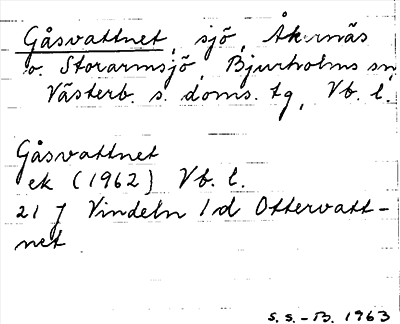 Gåsvattnet, sjö, Åkernäs
o. Storarmsjö, Bjurholms sn,
Västerb. s. doms. tg, Vb. l.
Gåsvattnet
ek (1962) Vb. l.
21 J Vindeln 1d Ottervatt-
net
S. S.-B. 1963